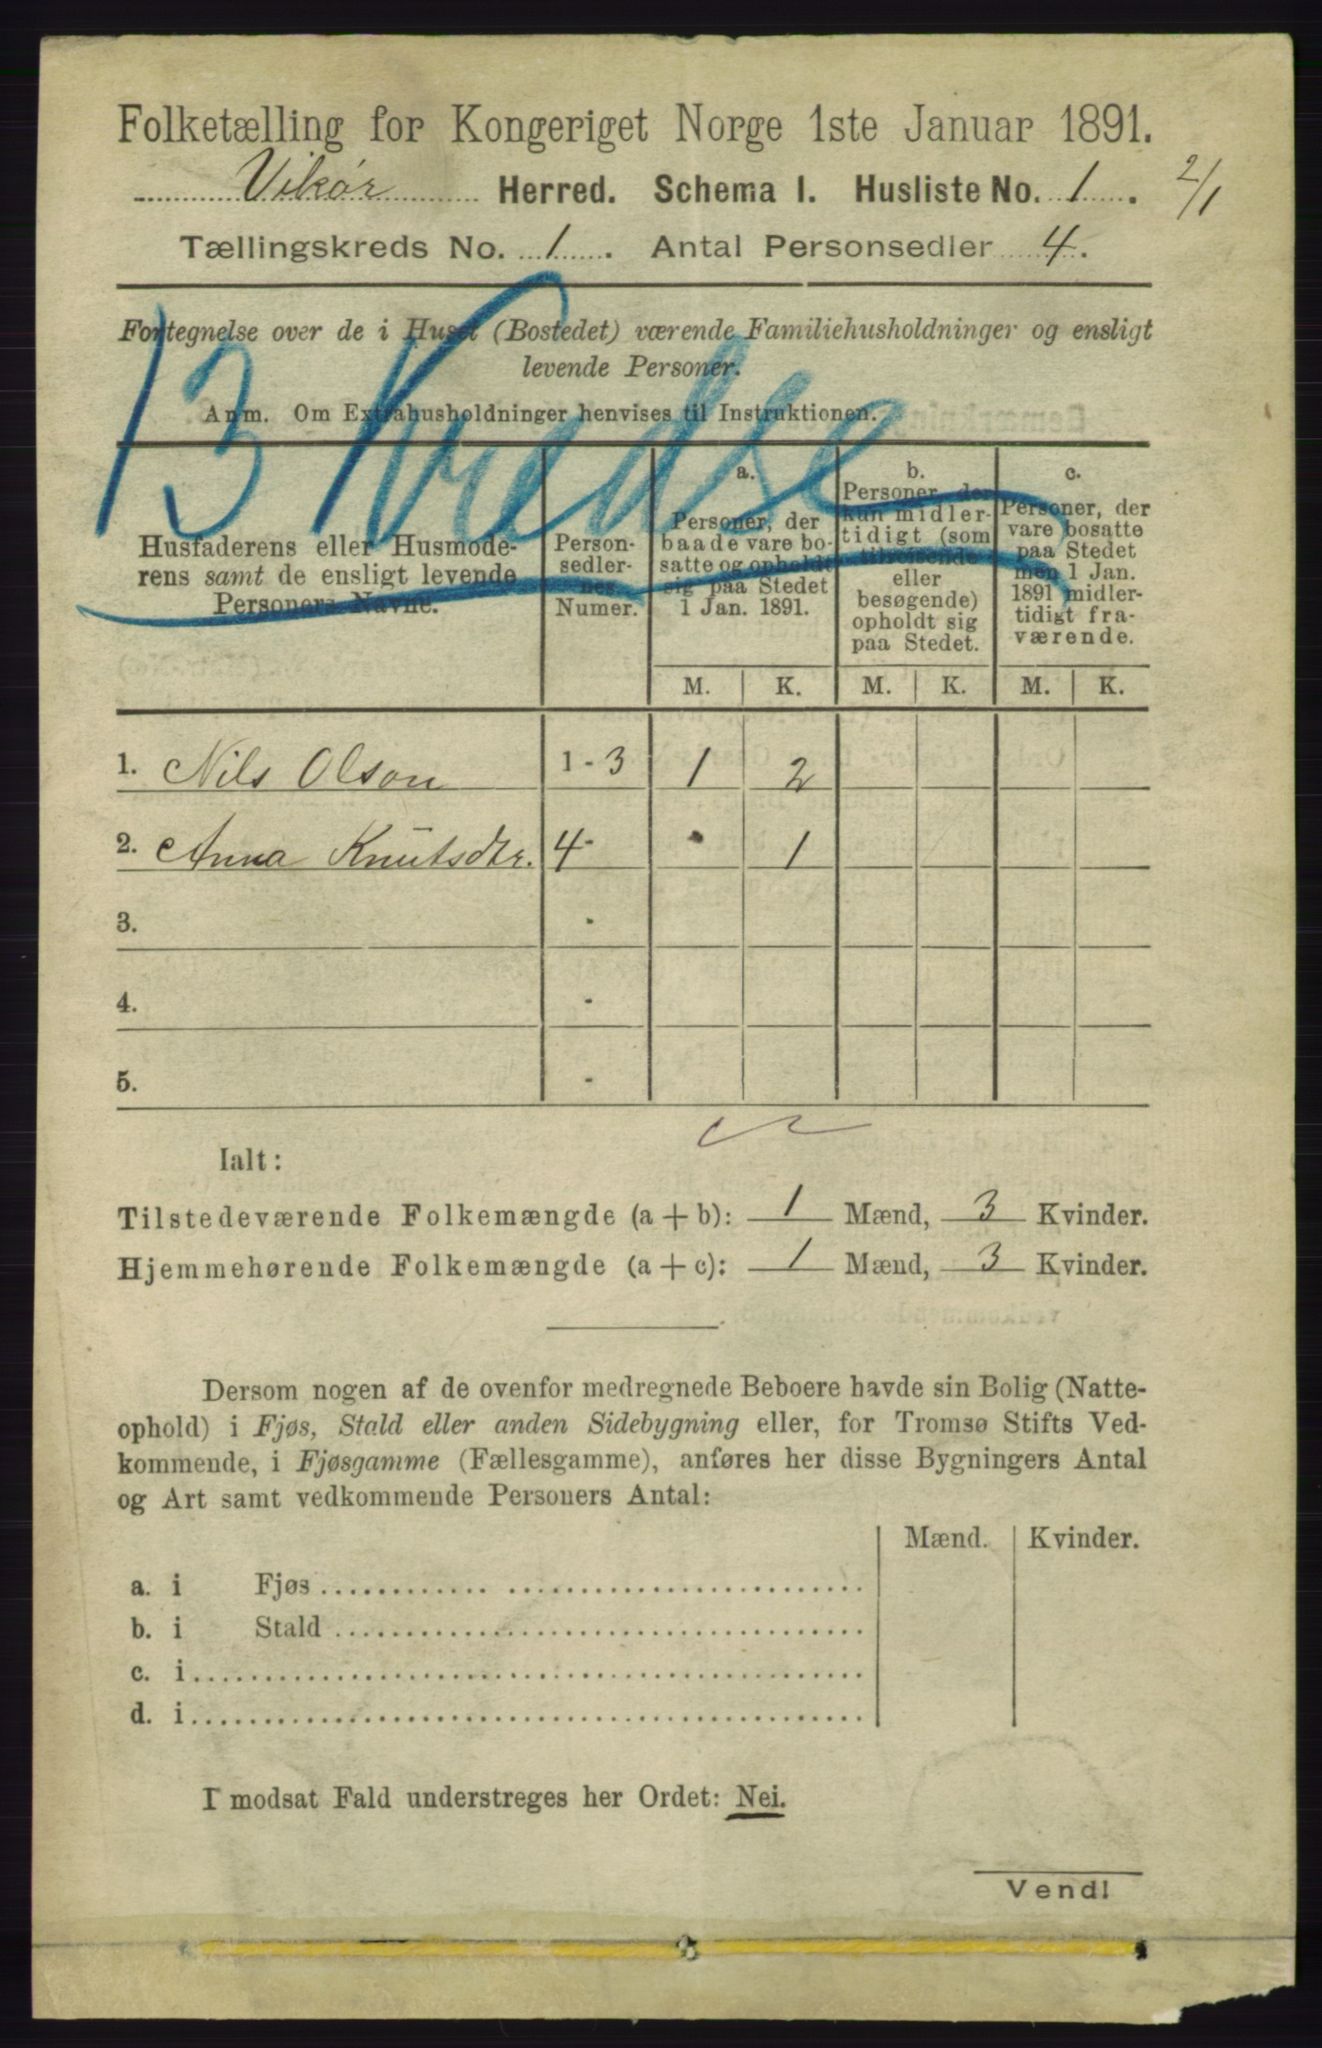 Folketælling for Kongeriget Norge 1ste Januar 1891.
Vikör Herred. Schema I. Husliste No. 1. 2/1
Tællingskreds No. 1. Antal Personsedler 4.
Fortegnelse over de i Huset (Bostedet) værende Familiehusholdninger og ensligt
levende Personer.
Anm. Om Extrahusholdninger henvises til Instruktionen.
13 Kredse
Husfaderens eller Husmode-
rens samt de ensligt levende
Personers Navne.
Person-
sedler-
nes
Numer.
a.
Personer, der
baade vare bo-
satte og opholdt
sig paa Stedet
1 Jan. 1891.
b.
Personer, der
kun midler-
tidigt (som
tilreisende
eller
besøgende)
opholdt sig
paa Stedet.
c.
Personer, der
vare bosatte
paa Stedet
men 1 Jan.
1891 midler-
tidigt fra-
værende.
M. K. M. K. M. K.
1. Nils Olson 1-3 1 2
2. Anna Knutsdtr. 4- • 1
3. -
4. -
5. -
Ialt:
Tilstedeværende Folkemængde (a + b): 1 Mænd, 3 Kvinder.
Hjemmehørende Folkemængde (a + c): 1 Mænd, 3 Kvinder.
Dersom nogen af de ovenfor medregnede Beboere havde sin Bolig (Natte-
ophold) i Fjøs, Stald eller anden Sidebygning eller, for Tromsø Stifts Ved-
kommende, i Fjøsgamme (Fællesgamme), anføres her disse Bygningers Antal
og Art samt vedkommende Personers Antal:
Mænd. Kvinder.
a. i Fjøs
b. i Stald
c. i
d. i
I modsat Fald understreges her Ordet: Nei.
Vend!